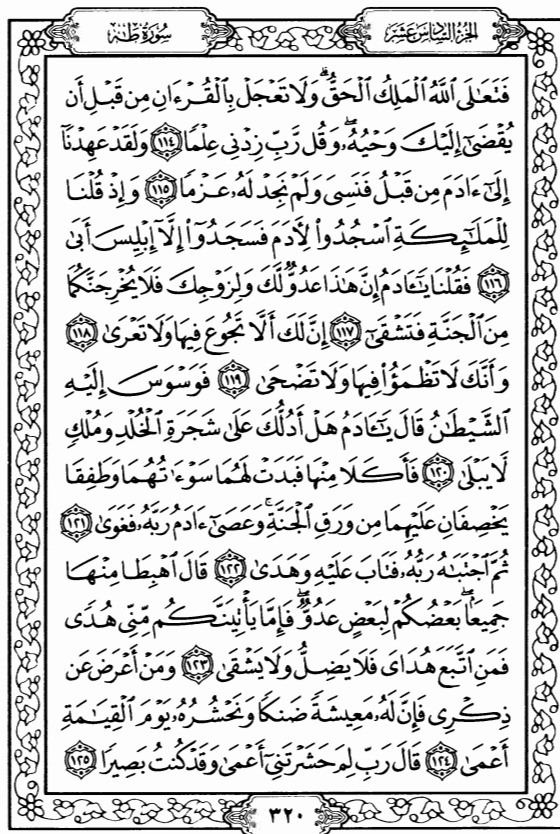 سُورَةُ طه
الجزء السادس عشر
فَتَعَٰلَى ٱللَّهُ ٱلْمَلِكُ ٱلْحَقُّ ۗ وَلَا تَعْجَلْ بِٱلْقُرْءَانِ مِن قَبْلِ أَن
يُقْضَىٰٓ إِلَيْكَ وَحْيُهُۥ ۖ وَقُل رَّبِّ زِدْنِى عِلْمًا ١١٤ وَلَقَدْ عَهِدْنَآ
إِلَىٰٓ ءَادَمَ مِن قَبْلُ فَنَسِىَ وَلَمْ نَجِدْ لَهُۥ عَزْمًا ١١٥ وَإِذْ قُلْنَا
لِلْمَلَٰٓئِكَةِ ٱسْجُدُوا۟ لِءَادَمَ فَسَجَدُوٓا۟ إِلَّآ إِبْلِيسَ أَبَىٰ
١١٦ فَقُلْنَا يَٰٓـَٔادَمُ إِنَّ هَٰذَا عَدُوٌّ لَّكَ وَلِزَوْجِكَ فَلَا يُخْرِجَنَّكُمَا
مِنَ ٱلْجَنَّةِ فَتَشْقَىٰٓ ١١٧ إِنَّ لَكَ أَلَّا تَجُوعَ فِيهَا وَلَا تَعْرَىٰ ١١٨
وَأَنَّكَ لَا تَظْمَؤُا۟ فِيهَا وَلَا تَضْحَىٰ ١١٩ فَوَسْوَسَ إِلَيْهِ
ٱلشَّيْطَٰنُ قَالَ يَٰٓـَٔادَمُ هَلْ أَدُلُّكَ عَلَىٰ شَجَرَةِ ٱلْخُلْدِ وَمُلْكٍ
لَّا يَبْلَىٰ ١٢٠ فَأَكَلَا مِنْهَا فَبَدَتْ لَهُمَا سَوْءَٰتُهُمَا وَطَفِقَا
يَخْصِفَانِ عَلَيْهِمَا مِن وَرَقِ ٱلْجَنَّةِ ۚ وَعَصَىٰٓ ءَادَمُ رَبَّهُۥ فَغَوَىٰ ١٢١
ثُمَّ ٱجْتَبَٰهُ رَبُّهُۥ فَتَابَ عَلَيْهِ وَهَدَىٰ ١٢٢ قَالَ ٱهْبِطَا مِنْهَا
جَمِيعًۢا ۖ بَعْضُكُمْ لِبَعْضٍ عَدُوٌّ ۖ فَإِمَّا يَأْتِيَنَّكُم مِّنِّى هُدًى
فَمَنِ ٱتَّبَعَ هُدَاىَ فَلَا يَضِلُّ وَلَا يَشْقَىٰ ١٢٣ وَمَنْ أَعْرَضَ عَن
ذِكْرِى فَإِنَّ لَهُۥ مَعِيشَةً ضَنكًا وَنَحْشُرُهُۥ يَوْمَ ٱلْقِيَٰمَةِ
أَعْمَىٰ ١٢٤ قَالَ رَبِّ لِمَ حَشَرْتَنِىٓ أَعْمَىٰ وَقَدْ كُنتُ بَصِيرًا ١٢٥
٣٢٠